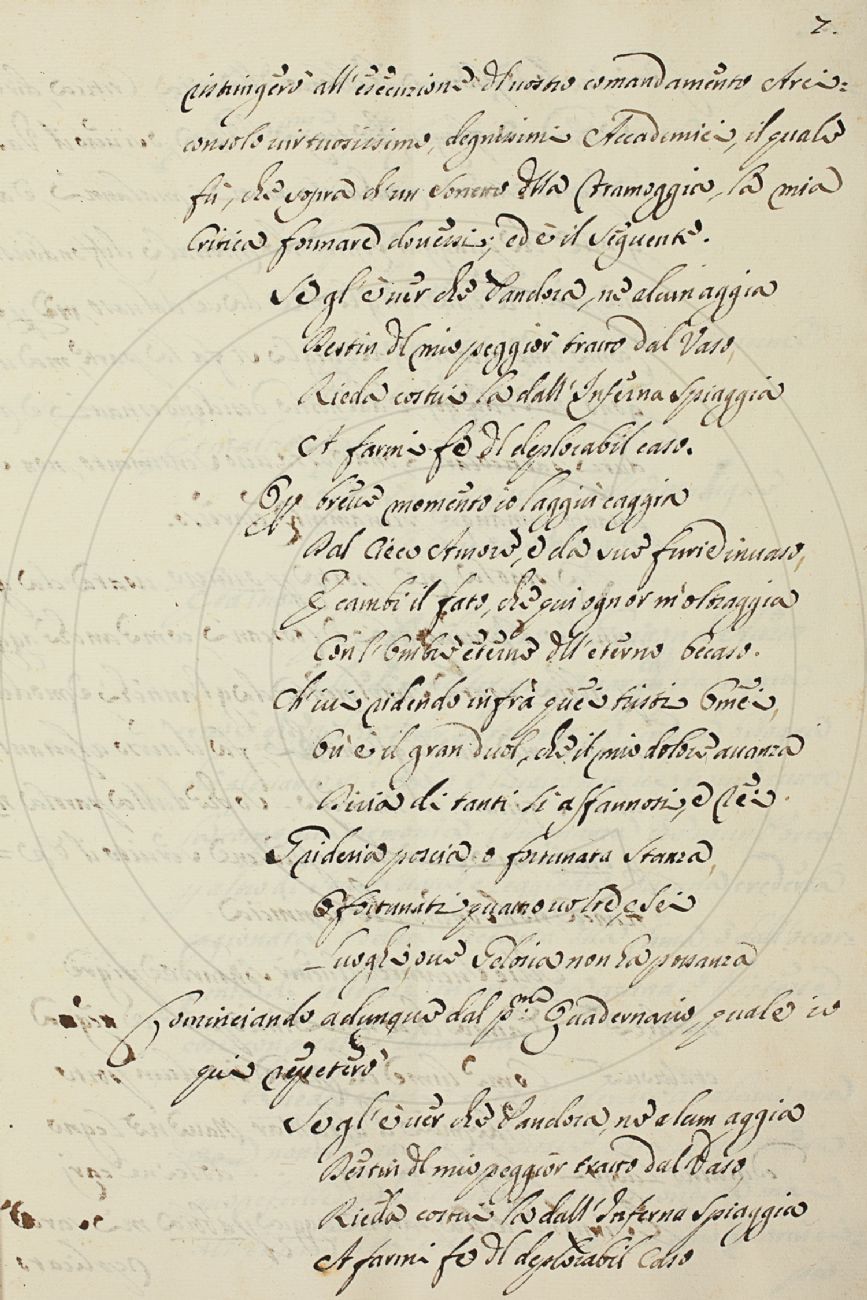 2.
ristringerò all'esecuzione del vostro comandamento Arci=
consolo virtuosissimo, degnissimi Accademici, il quale
fù, che sopra d'un Sonetto della Tramoggia, la mia
Critica formare dovessi; ed è il seguente.
Se gl'è ver che Pandora, ne alcun aggia
Destin del mio peggior tratto dal Vaso,
Rieda costui là dall'Inferna Spiaggia
A farmi fè del deplorabil caso.
Per breve momento io laggiù caggia
Dal Cieco Amore, e da sue furie invaso,
E cambi il fato, che qui ognor m'oltraggia
Con l'Ombre eterne dell'eterno Occaso.
Ch'ivi ridendo infrà quei tristi Omei,
Ou'è il gran duol, che il mio dolore avanza
Diria di tanti sì affannosi, e rei.
Grideria poscia, o fortunata Stanza,
O fortunati quattro volte, e sei
Luoghi, ove Gelosia non hà possanza
Cominciando adunque dal pmo. Quadernario, quale io
qui repeterò
Se gl'è ver che Pandora, ne alcun aggia
Destin del mio peggior tratto dal Vaso,
Rieda costui là dall'Inferna Spiaggia
A farmi fè del deplorabil Caso